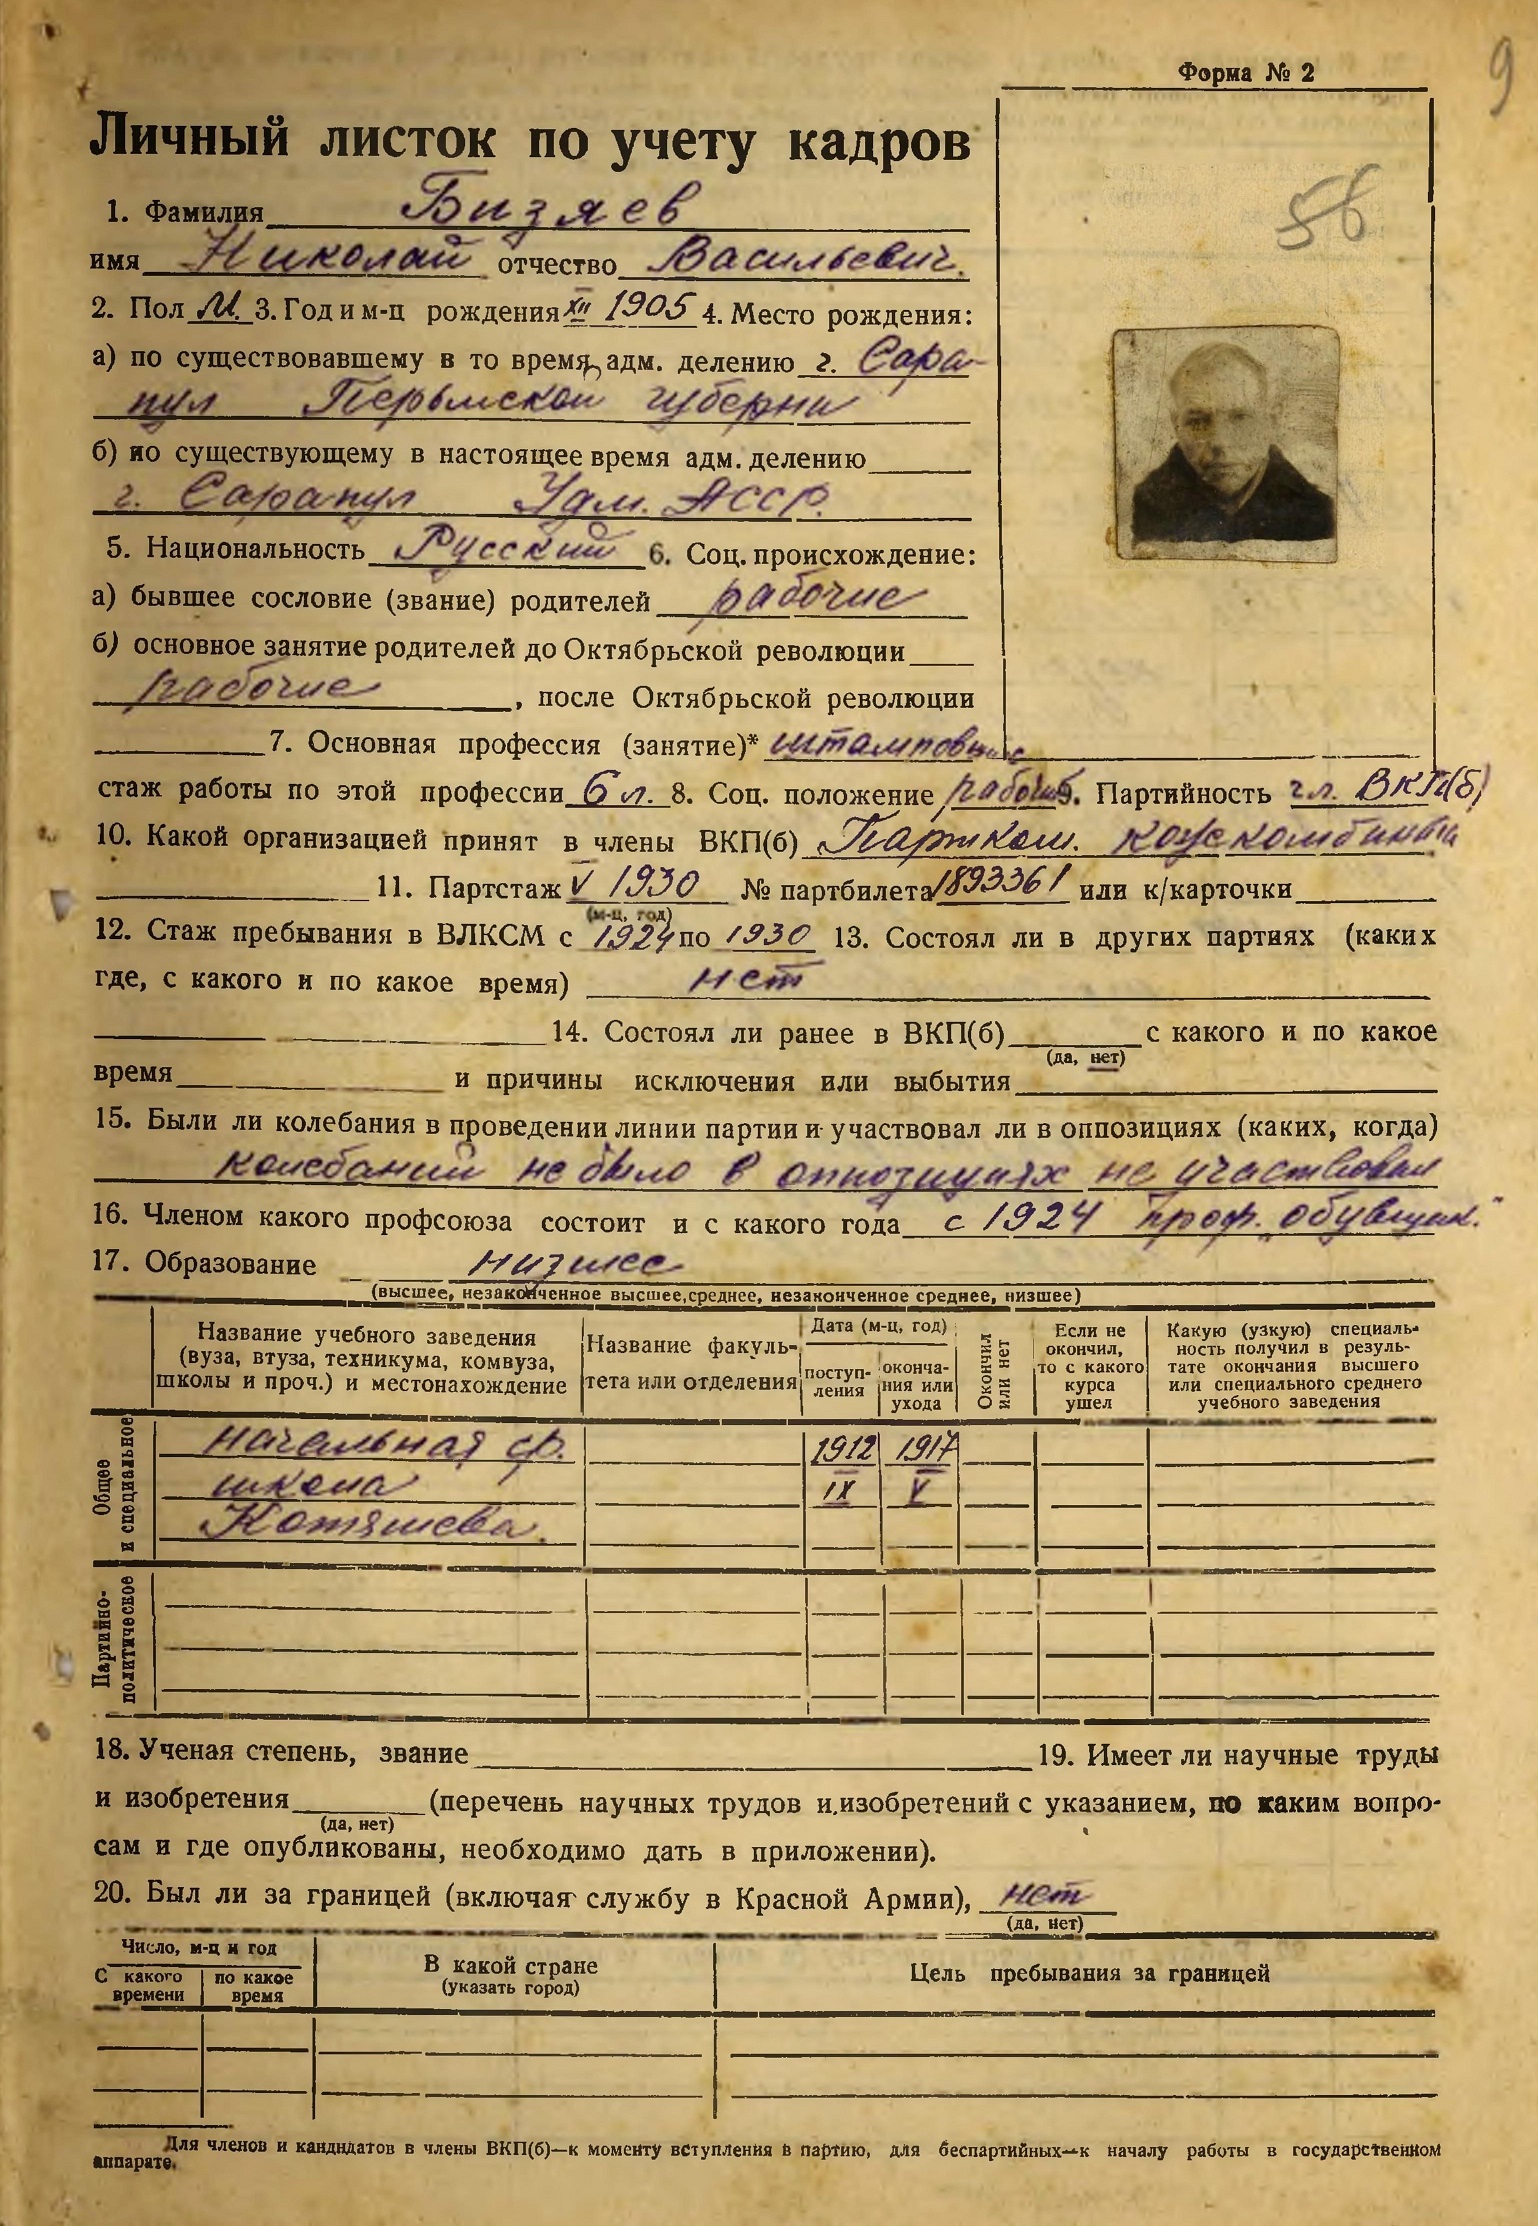 9
Форма № 2
Личный листок по учету кадров
56
1. Фамилия Бизяев
имя Николай отчество Васильевич.
2. Пол М. 3. Год и м-ц рождения XII 1905 4. Место рождения:
а) по существовавшему в то время, адм. делению г. Сара-
пул Перьмской губерни
б) по существующему в настоящее время адм. делению
г. Сарапул Удм. АССР.
5. Национальность Русский 6. Соц. происхождение:
а) бывшее сословие (звание) родителей рабочие
б) основное занятие родителей до Октябрьской революции
рабочие, после Октябрьской революции
7. Основная профессия (занятие)* штамповщик
стаж работы по этой профессии 6 л. 8. Соц. положение рабочий 9. Партийность чл. ВКП(б)
10. Какой организацией принят в члены ВКП(б) Партком. кожкомбината
11. Партстаж V 1930 № партбилета 1893361 или к/карточки
(м-ц, год)
12. Стаж пребывания в ВЛКСМ с 1924 по 1930 13. Состоял ли в других партиях (каких
где, с какого и по какое время) нет
14. Состоял ли ранее в ВКП(б) с какого и по какое
(да, нет)
время и причины исключения или выбытия
15. Были ли колебания в проведении линии партии и участвовал ли в оппозициях (каких, когда)
колебаний не было в оппозициях не участвовал
16. Членом какого профсоюза состоит и с какого года с 1924 проф. „обувщик."
17. Образование низшее
(высшее, незаконченное высшее, среднее, незаконченное среднее, низшее)
Название учебного заведения (вуза, втуза, техникума, комвуза, школы и проч.) и местонахождение
Название факультета или отделения
Дата (м-ц, год)
поступления
окончания или ухода
Окончил или нет
Если не окончил, то с какого курса ушел
Какую (узкую) специальность получил в результате окончания высшего или специального среднего учебного заведения
Общее и специальное
начальная ср. 1912 1917
школа IX V
Котяшева.
Партийно-политическое
18. Ученая степень, звание 19. Имеет ли научные труды
и изобретения (перечень научных трудов и изобретений с указанием, по каким вопро-
(да, нет)
сам и где опубликованы, необходимо дать в приложении).
20. Был ли за границей (включая службу в Красной Армии), нет
(да, нет)
Число, м-ц и год
С какого времени
по какое время
В какой стране
(указать город)
Цель пребывания за границей
Для членов и кандидатов в члены ВКП(б)—к моменту вступления в партию, для беспартийных—к началу работы в государственном
аппарате.